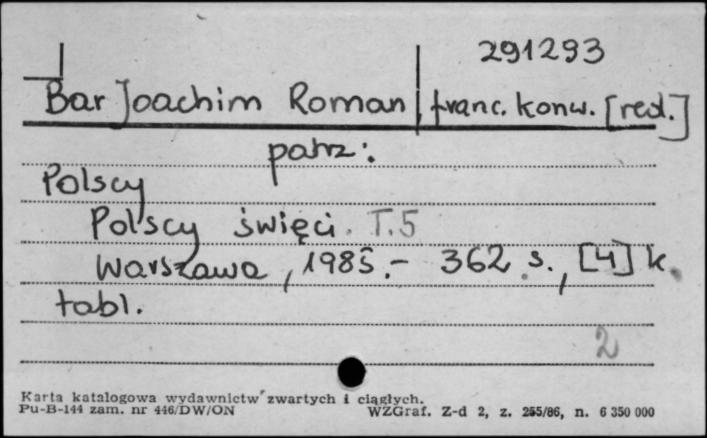 291293
Bar Joachim Roman, franc. konw. [red.]
patrz:
Polscy
Polscy święci. T.5
Warszawa, 1985.- 362 s., [4] k.
tabl.
2
Karta katalogowa wydawnictw zwartych i ciągłych.
Pu-B-144 zam. nr 446/DW/ON WZGraf. Z-d 2, z. 255/86, n. 6 350 000